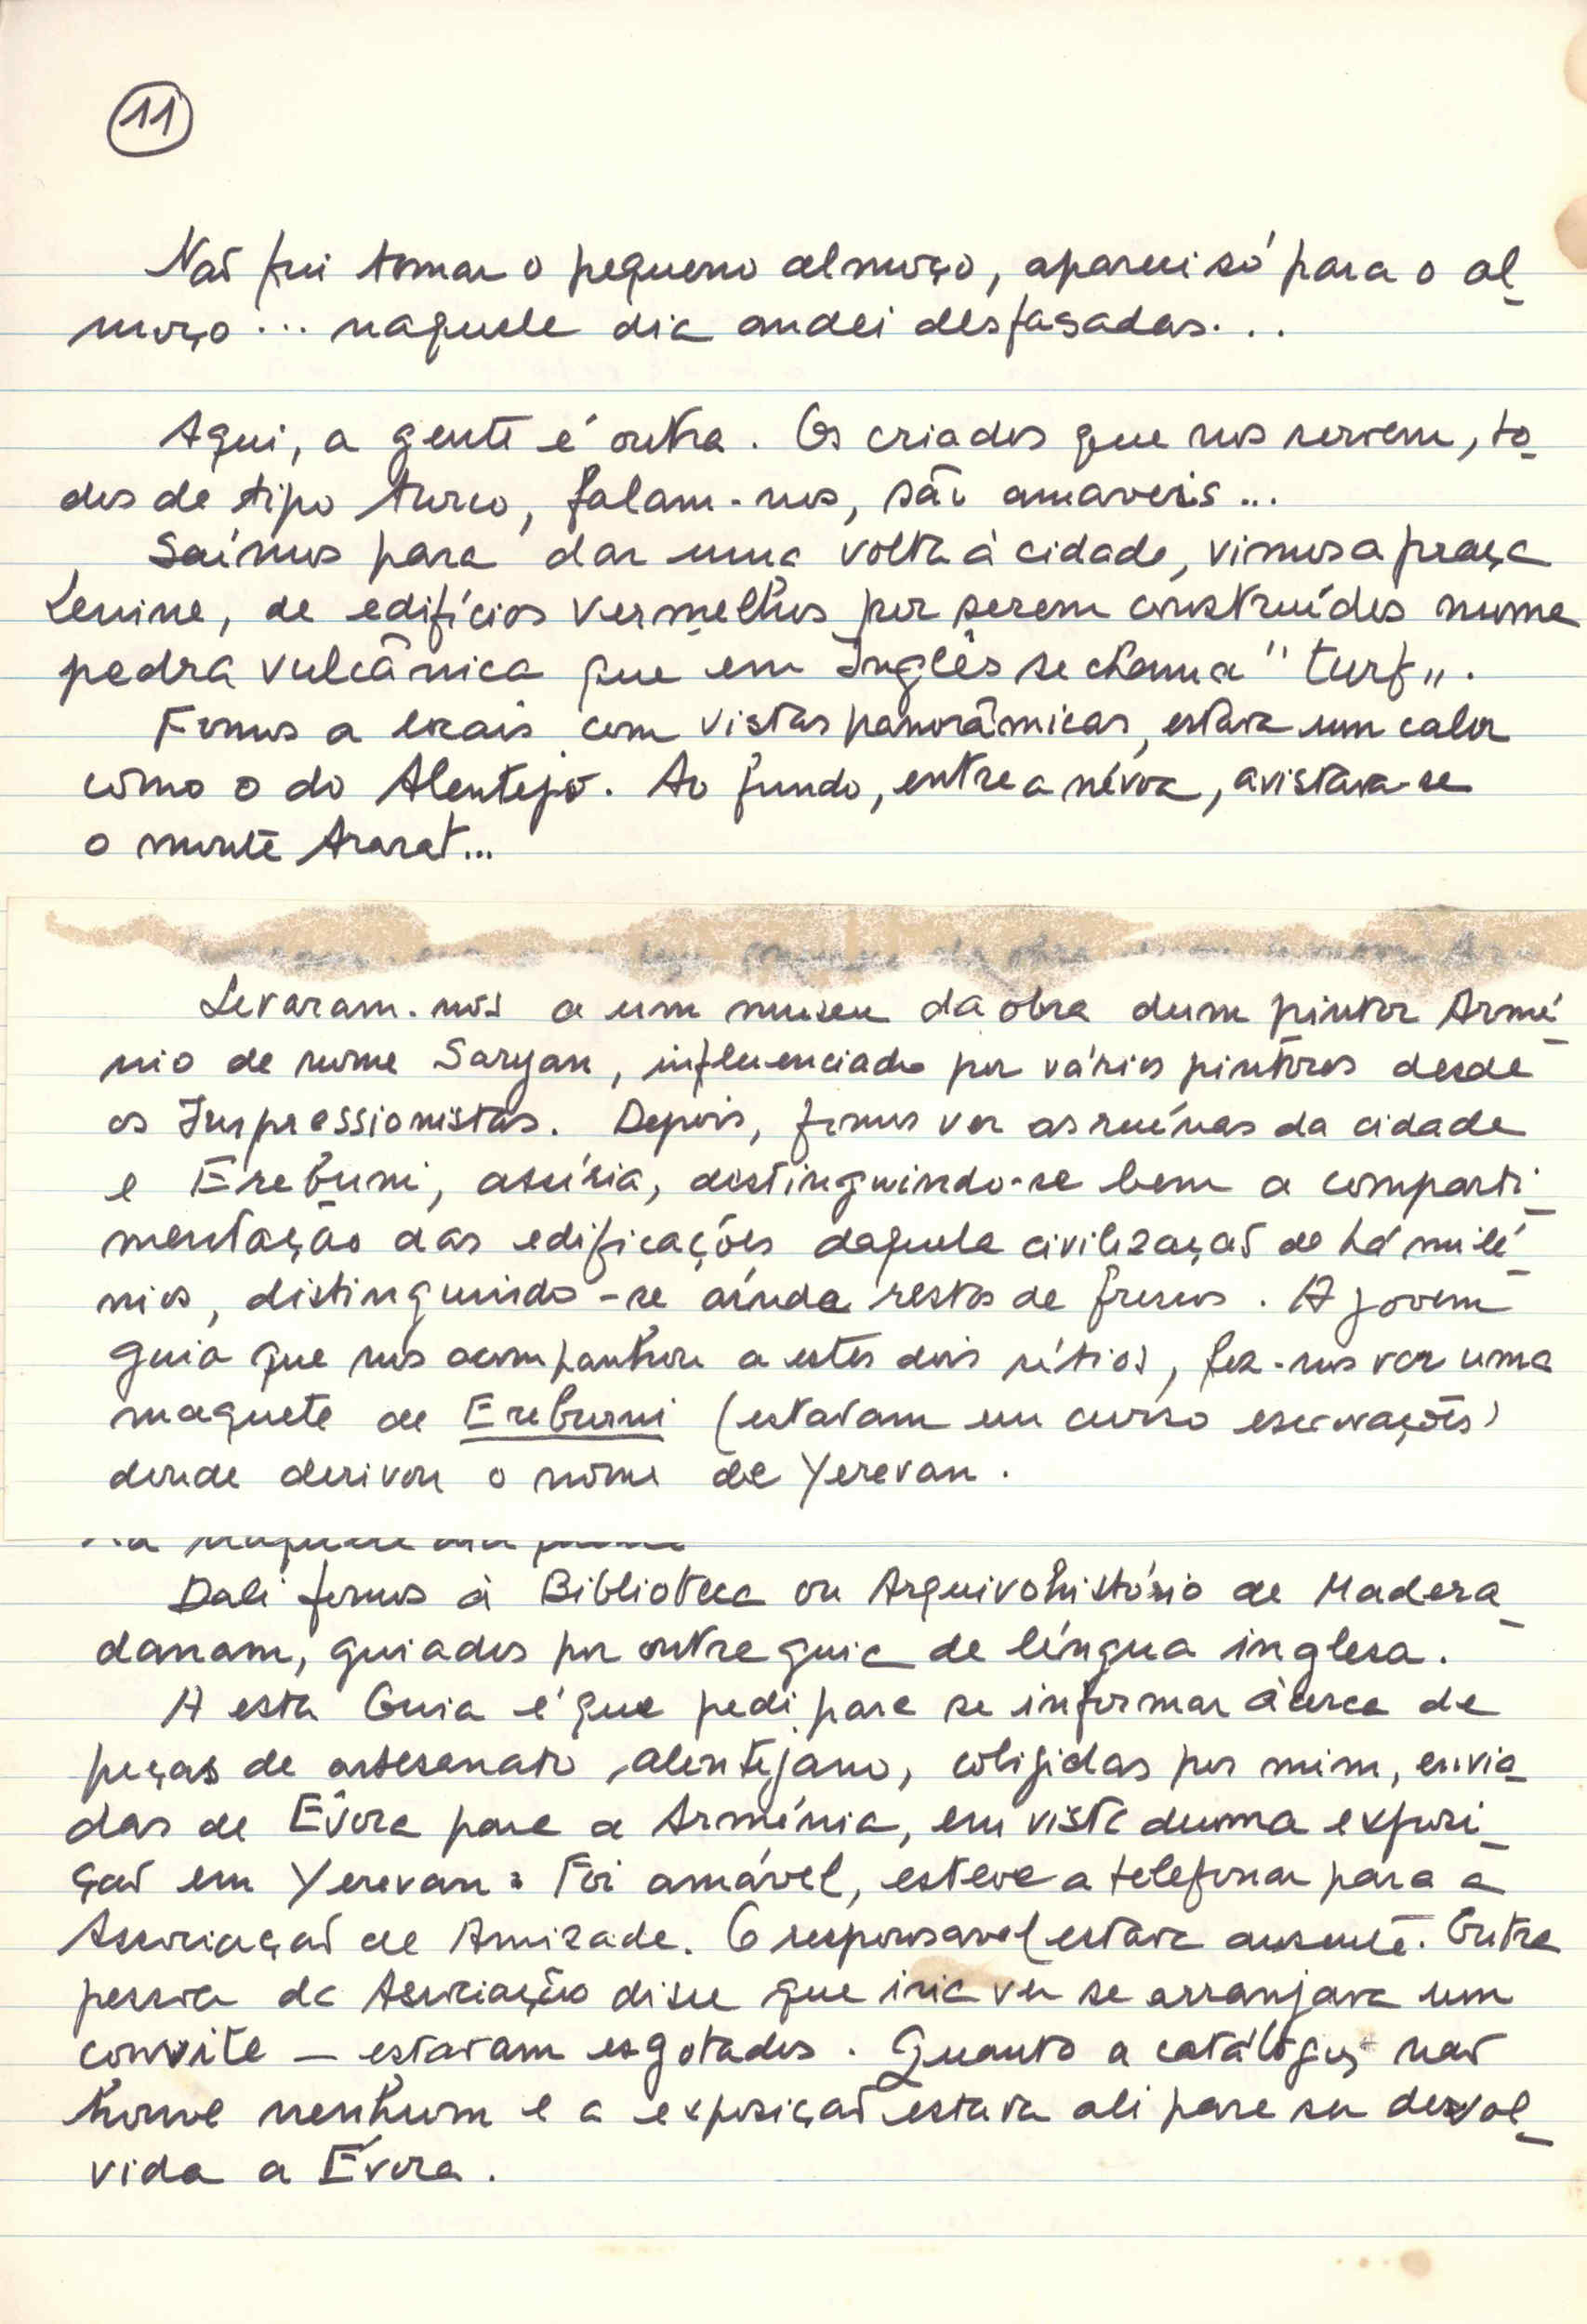 11
Não fui tomar o pequeno almoço, apareci só para o al_
moço... naquele dia andei desfasadas...
Aqui, a gente é outra. Os criados que nos servem, to_
dos de tipo turco, falam-nos, são amaveis...
Saímos para dar uma volta à cidade, vimos a praça
Lenine, de edifícios vermelhos por serem construídos numa
pedra vulcânica que em Inglês se chama "turf".
Fomos a locais com vistas panorâmicas, estava um calor
como o do Alentejo. Ao fundo, entre a névoa, avistava-se
o monte Ararat...
Levaram-nos a um museu da obra dum pintor Armé_
nio de nome Saryan, influenciado por vários pintores desde
os Impressionistas. Depois, fomos ver as ruínas da cidade
e Erebuni, assíria, distinguindo-se bem a comparti_
mentação das edificações daquela civilização de há milé_
nios, distinguindo-se ainda restos de frescos. A jovem
guia que nos acompanhou a estes dois sítios, fez-nos ver uma
maquete de Erebuni (estavam em curso escavações)
donde derivou o nome de Yerevan.
Dali fomos à Biblioteca ou Arquivo histório de Madera_
danam, guiados por outra guia de língua inglesa.
A esta Guia é que pedi para se informar àcerca de
peças de artesanato alentejano, coligidas por mim, envia_
das de Évora para a Arménia, em vista duma exposi_
ção em Yerevan. Foi amável, esteve a telefonar para a
Associação de Amizade. O responsavel estava ausente. Outra
pessoa da Associação disse que iria ver se arranjava um
convite — estavam esgotados. Quanto a catálogos não
houve nenhum e a exposição estava ali para ser devol_
vida a Évora.